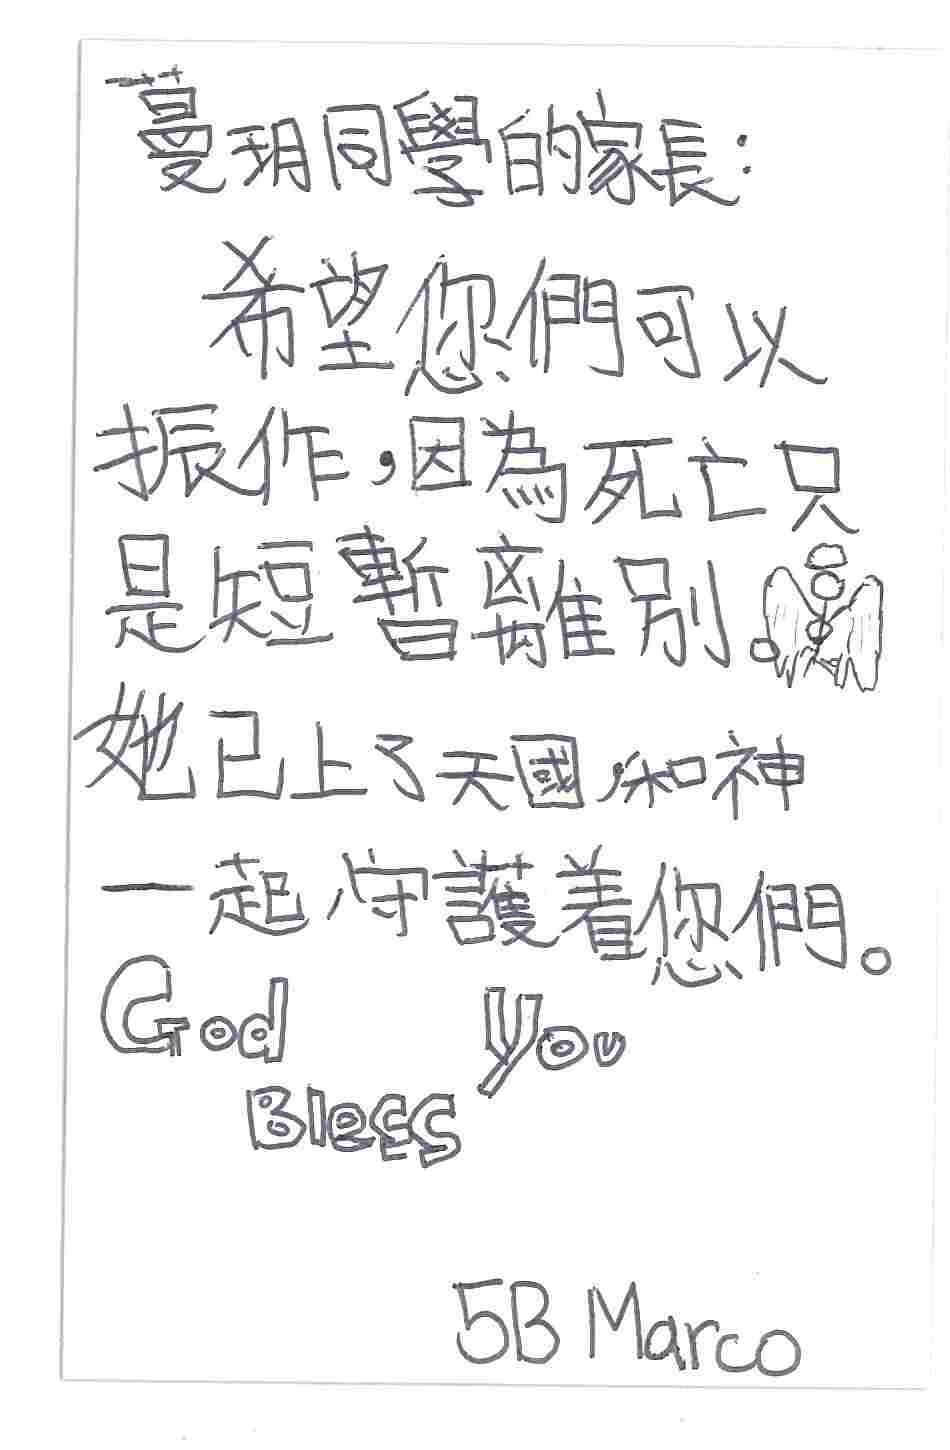 蔓玥同學的家長：
希望您們可以
振作，因為死亡只
是短暫離別。
她已上了天國，和神
一起守護着您們。
God you
Bless
5B Marco